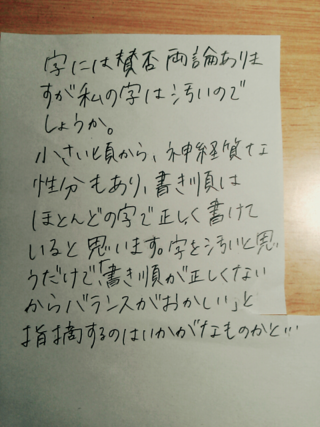 字には賛否両論ありま
すが私の字は汚いので
しょうか。
小さい頃から、神経質な
性分もあり、書き順は
ほとんどの字で正しく書けて
いると思います。字を汚いと思
うだけで、「書き順が正しくない
からバランスがおかしい」と
指摘するのはいかがなものかと…